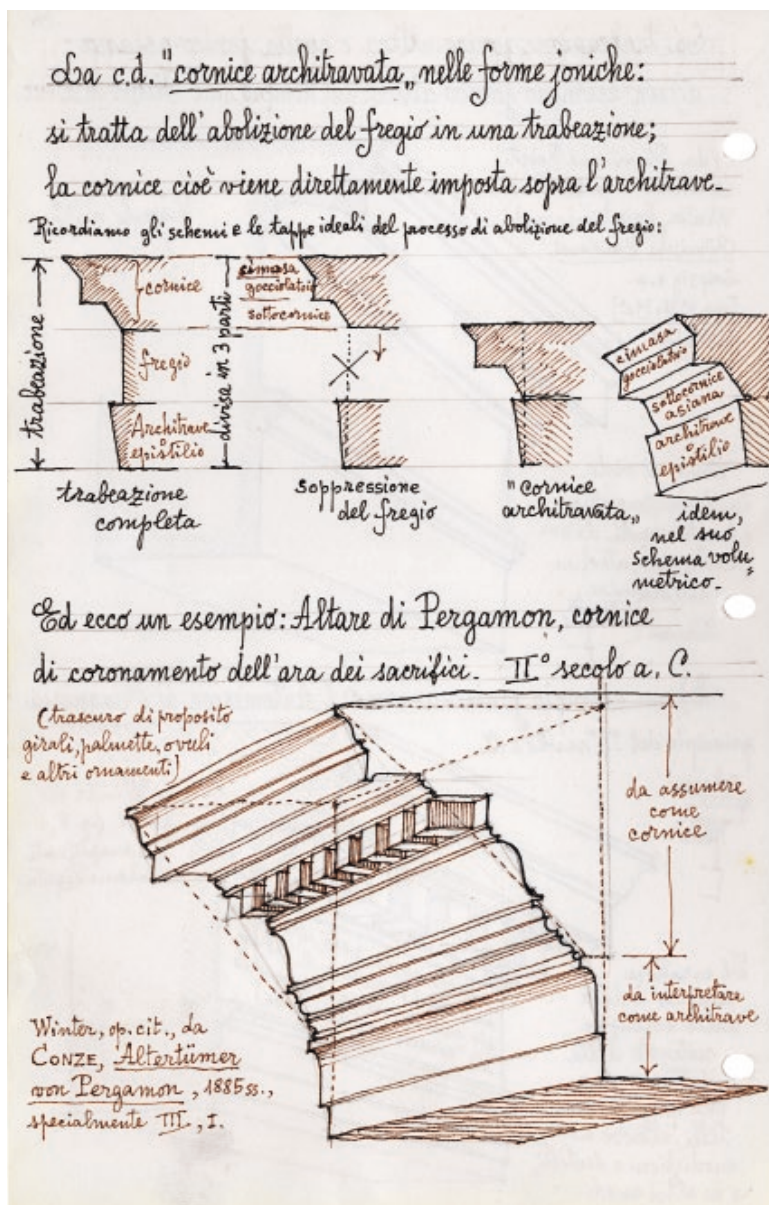 La c.d. "cornice architravata„ nelle forme joniche:
si tratta dell'abolizione del fregio in una trabeazione;
la cornice cioè viene direttamente imposta sopra l'architrave.
Ricordiamo gli schemi e le tappe ideali del processo di abolizione del fregio:
trabeazione
cornice
fregio
Architrave
o
epistilio
trabeazione
completa
divisa in 3 parti
cimasa
gocciolatoio
sottocornice
soppressione
del fregio
"cornice
architravata„
cimasa
gocciolatoio
sottocornice
asiana
architrave
o
epistilio
idem,
nel suo
schema volu=
metrico.
Ed ecco un esempio: Altare di Pergamon, cornice
di coronamento dell'ara dei sacrifici. II° secolo a. C.
(trascuro di proposito
girali, palmette, ovuli
e altri ornamenti)
da assumere
come
cornice
da interpretare
come architrave
Winter, op. cit., da
CONZE, Altertümer
von Pergamon, 1885ss.,
specialmente III, I.